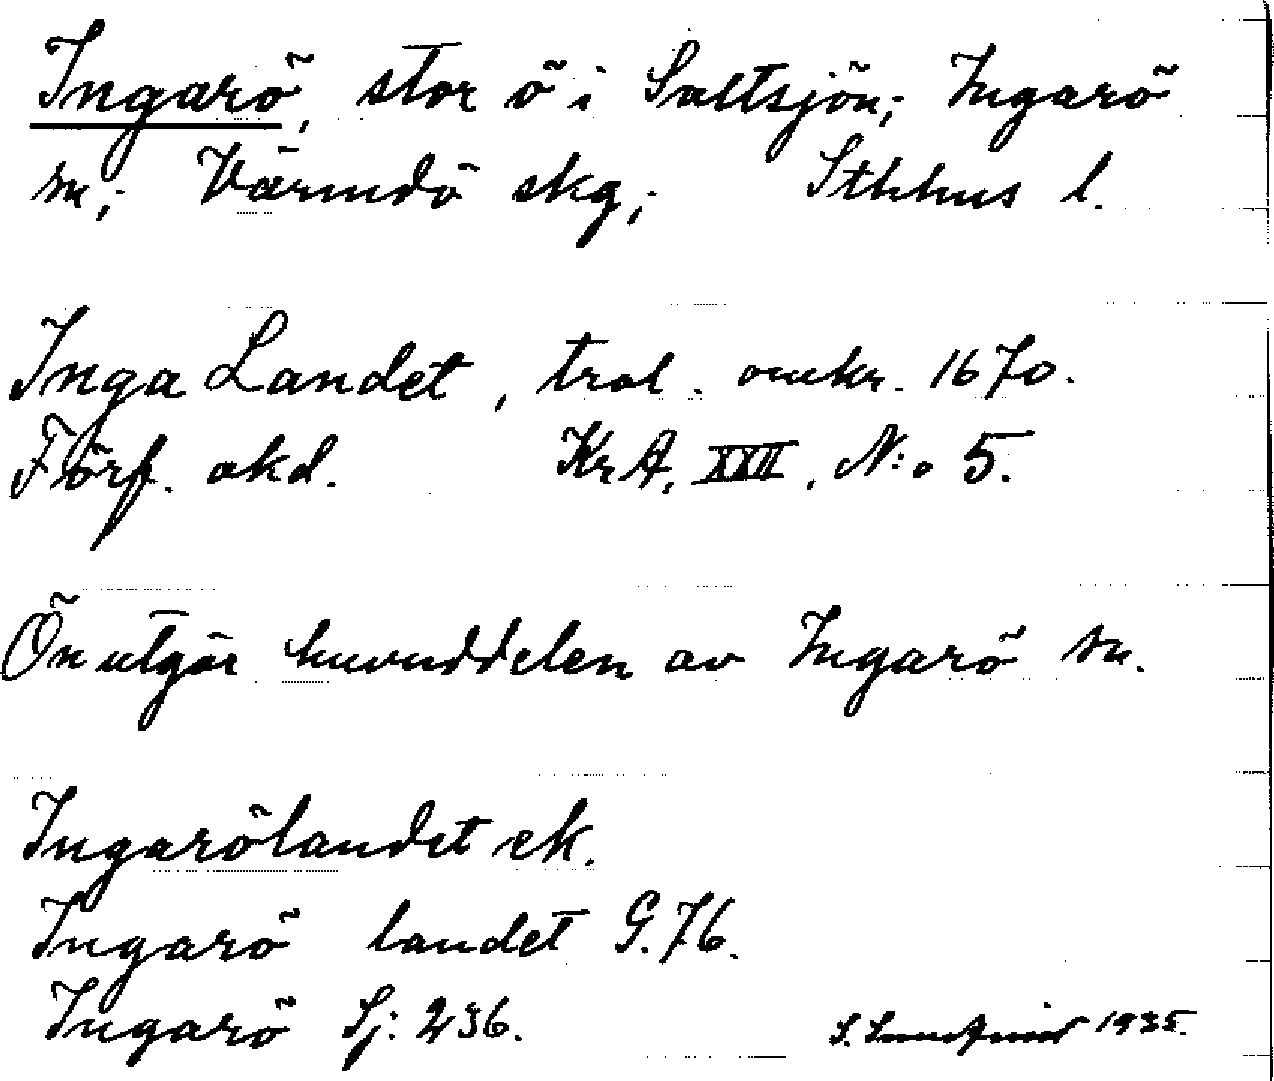 Ingarö, stor ö i Saltsjön; Ingarö
sn; Värmdö skg; Sthhus l.
Inga Landet, trol. omkr. 1670.
Förf. okd. KrA, XXII, N:o 5.
Ön utgör huvuddelen av Ingarö sn.
Ingarölandet ek.
Ingarö landet G.76.
Ingarö Sj: 236.
S. 1935.